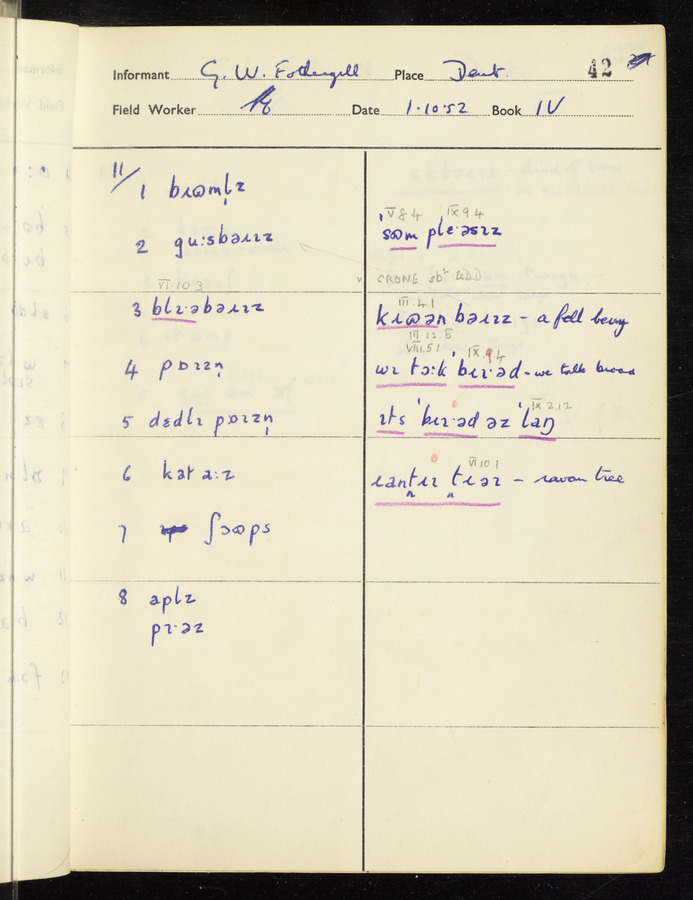 Informant G. W. Fothergill Place Dent. 42
Field Worker Date 1·10·52 Book IV
11/ 1 bɹɷmlz
V 8 4 IX 9. 4
2 gu:sbəɹɪz
sɷm plɛ·əsɪz
VI·10 3
v CRONE sb² EDD
3 blɪ·əbəɹɪz
III. 4. 1
kɹɷən bəɪɪz – a fell berry
III 12. 5
VIII. 5 1 IX. 9 4
4 pɒɪzn̩
wɪ tɔ:k ˈbɪɪ·əd – we talk broad
IX 2. 12
5 dɛdlɪ pɒɪzn̩
ɪts ˈbɪɪ·əd əz ˈlaŋ
VI 10. 1
6 kat a:z
ɹantɪɪ tɹəɪ – rowan tree
7 ʃɔɷps
8 aplz
pɪ·əz